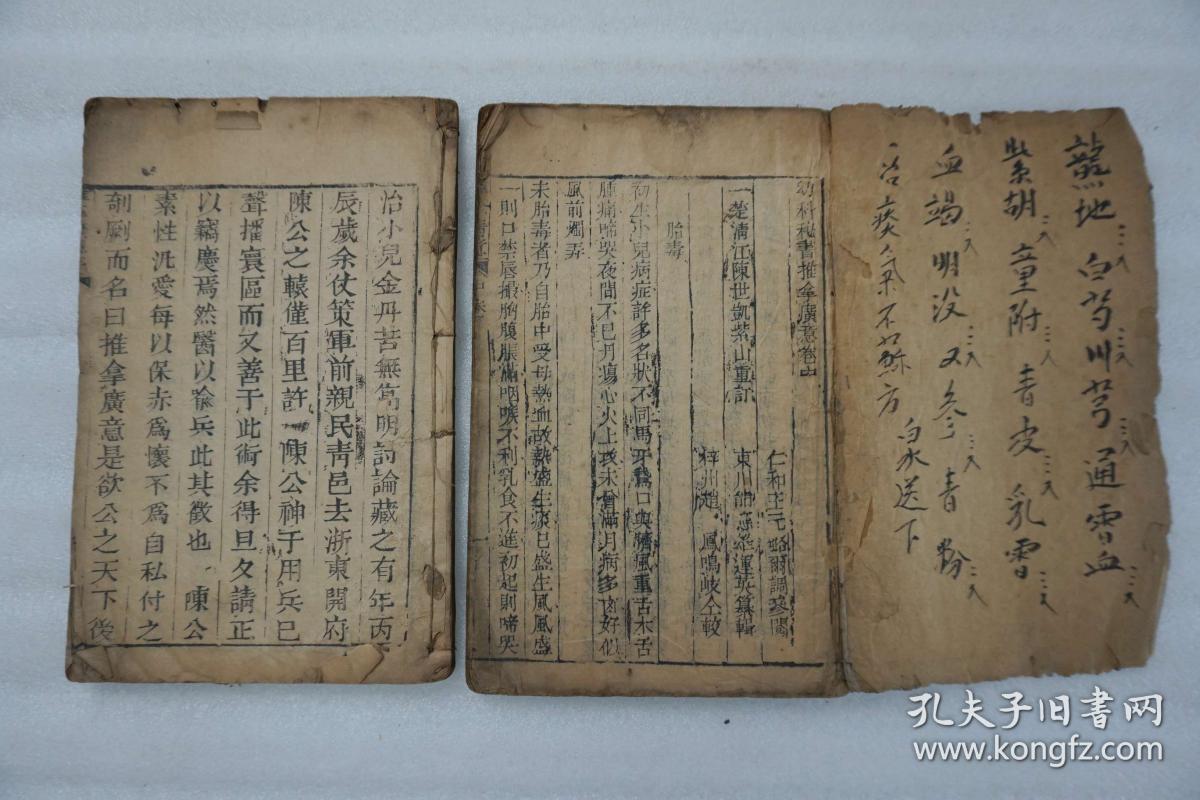 治小兒金丹苦無旁明討論藏之有年丙
辰歲余仗策軍前親民靑邑去浙東開府
陳公之轅僅百里許 陳公神于用兵已
聲播寰區而又善于此術余得旦夕請正
以竊慶焉然醫以喻兵此其徵也 陳公
素性汎愛每以保赤爲懷不爲自私付之
剞劂而名曰推拿廣意是欲公之天下後
幼科秘書推拿廣意卷中
仁和 元 爾調 閱
一楚淸江陳世凱紫山重訂 東川熊應雄運英纂輯
梓州 鳳鳴岐仝較
胎毒
初生小兒病症許多名狀不同馬牙鵞口與臍風重舌木舌
腫痛啼哭夜間不已丹瘍心火上攻未曾滿月病多肉好似
風前燭弄
夫胎毒者乃自胎中受母熱血故熱盛生痰已盛生風風盛
一則口禁唇撮胸腹脹滿咽喉不利乳食不進初起則啼哭
熟地 白芍 川芎 通 血
紫胡 童附 青皮 乳香
血竭 明没 又参 青粉
一治痰氣不 方 白水送下
孔夫子旧书网
www.kongfz.com